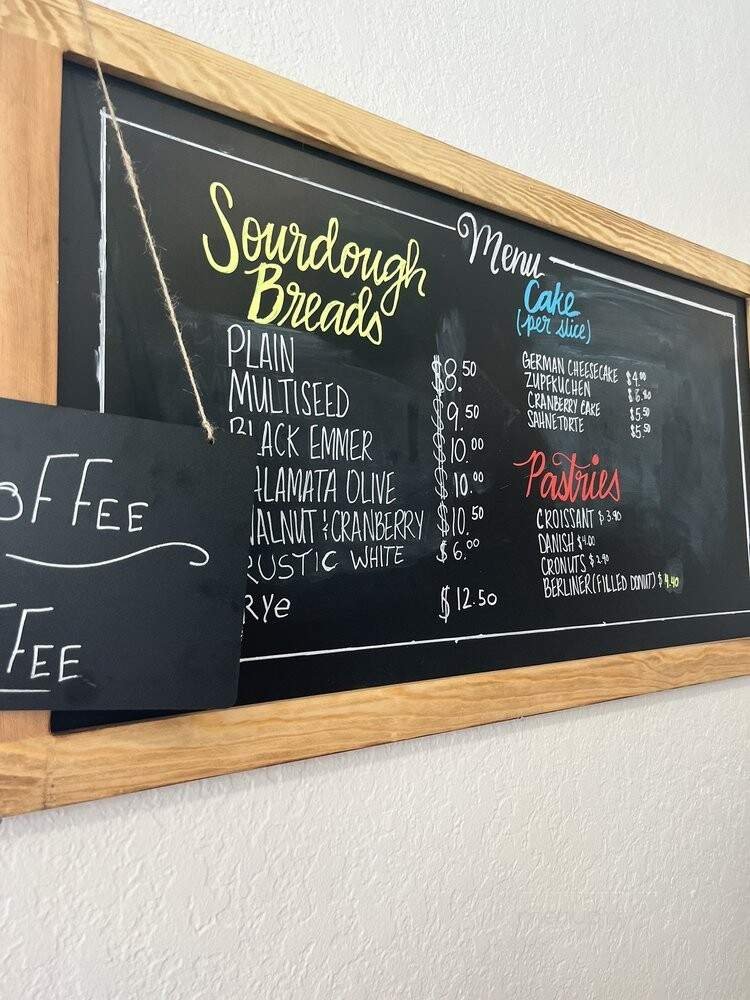 Menu
Sourdough
Breads
PLAIN $8.50
MULTISEED $9.50
BLACK EMMER $10.00
ALAMATA OLIVE $10.00
WALNUT & CRANBERRY $10.50
RUSTIC WHITE $6.00
RYe $12.50
Cake
(per slice)
GERMAN CHEESECAKE $4.00
ZUPFKUCHEN
CRANBERRY CAKE $5.50
SAHNETORTE $5.50
Pastries
CROISSANT $3.90
DANISH $4.00
CRONUTS $2.90
BERLINER (FILLED DONUT) $4.40
OFFEE
FEE